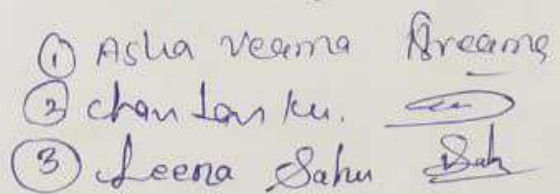 ① Asha Veerma Aveerma
② chandan ku.
③ Leena Sahu Sah